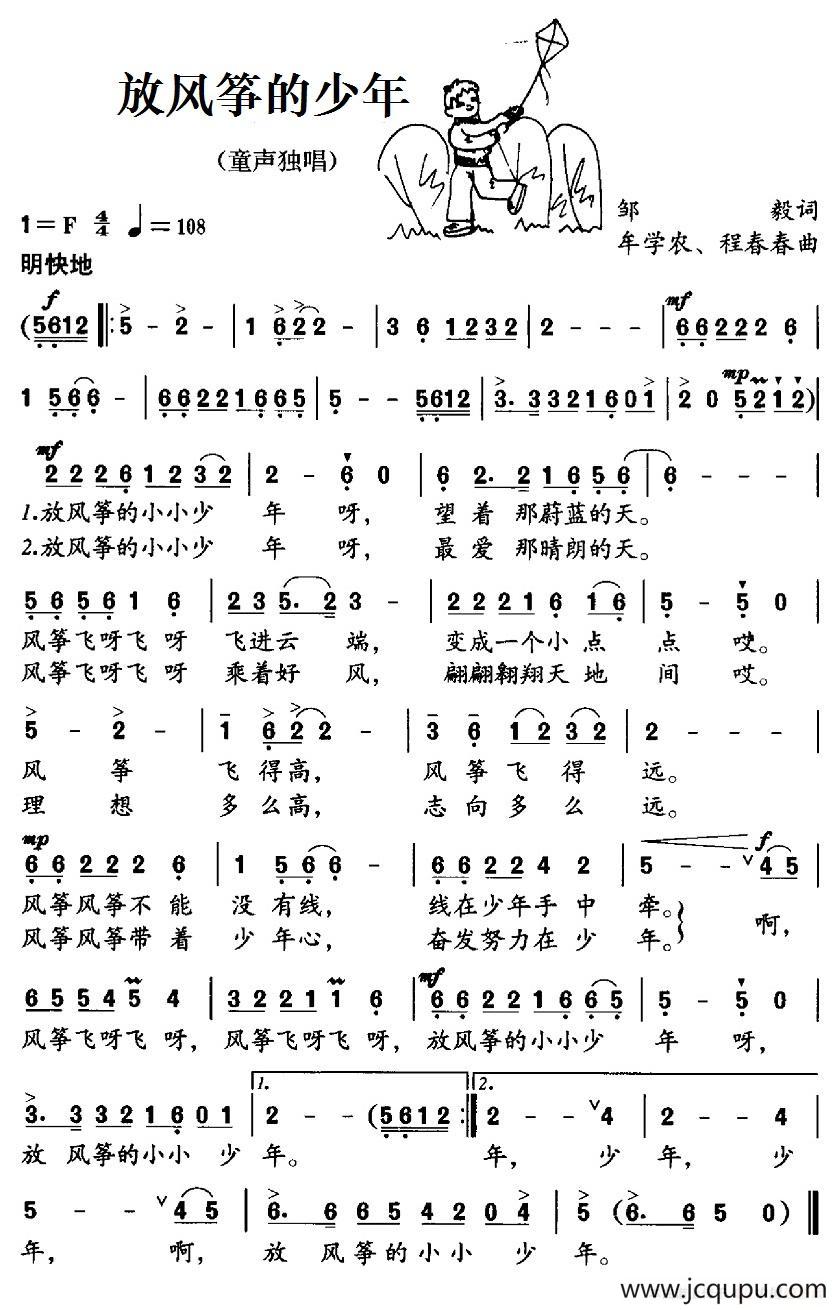 放风筝的少年
(童声独唱)
1=F 4/4 ♩=108
邹 毅词
牟学农、程春春曲
明快地
f
(5612 ‖: 5 - 2 - | 1 6 2 2 - | 3 6 12 32 | 2 - - - | mf 66 22 2 6 |
1 5 6 6 - | 66 22 16 65 | 5 - - 5612 | 3. 3 32 16 01 | 2 0 mp 5 2 1 2) |
mf
22 26 12 32 | 2 - 6 0 | 6 2. 2 16 56 | 6 - - - |
1.放风筝的小小少 年 呀, 望 着 那蔚蓝的天。
2.放风筝的小小少 年 呀, 最 爱 那晴朗的天。
56 56 1 6 | 23 5. 2 3 - | 22 21 6 16 | 5 - 5 0 |
风筝飞呀飞 呀 飞进云 端, 变成一个小 点 点 哎。
风筝飞呀飞 呀 乘着好 风, 翩翩翱翔天 地 间 哎。
5 - 2 - | 1 6 2 2 - | 3 6 12 32 | 2 - - - |
风 筝 飞 得高, 风 筝 飞 得 远。
理 想 多 么高, 志 向 多 么 远。
mp
66 22 2 6 | 1 56 6 - | 66 22 4 2 | 5 - - ∨ f 45 |
风筝风筝不 能 没 有线, 线在少年手 中 牵。 啊,
风筝风筝带 着 少 年心, 奋发努力在 少 年。
65 54 5 4 | 32 21 1 6 | mf 66 22 16 65 | 5 - 5 0 |
风筝飞呀飞 呀, 风筝飞呀飞 呀, 放风筝的小小少 年 呀,
3. 3 32 16 01 | 1. 2 - - (5612 :‖ 2. 2 - - ∨4 | 2 - - 4 |
放 风筝的小小 少 年。 年, 少 年, 少
5 - - ∨45 | 6. 6 65 42 04 | 5 (6. 6 5 0) ‖
年, 啊, 放 风筝的小小 少 年。
www.jcqupu.com